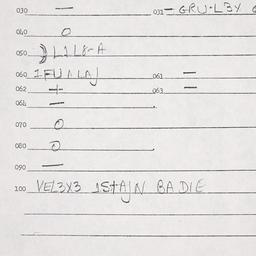 030 — 031 — GRU·LBY
040 O
050 ) L1L8-A
060 1FUALAJ 061 —
062 + 063 —
064 —
070 O
080 O
090 —
100 VEL3X3 1StAJN BADIE